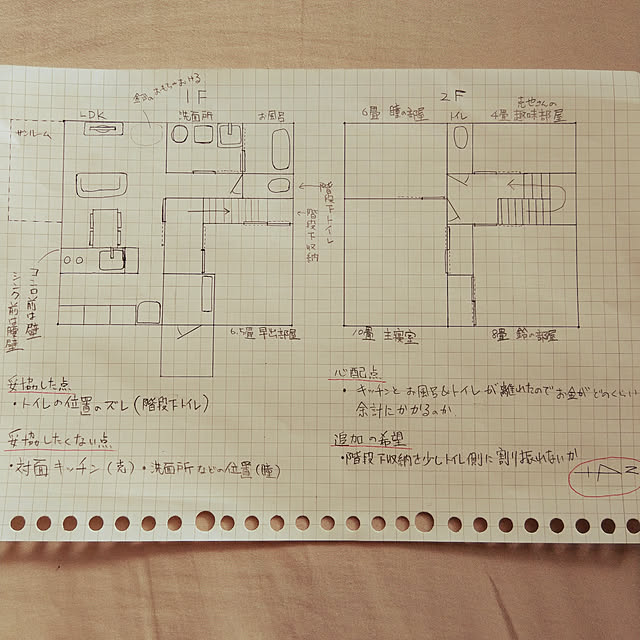 1F
LDK
サンルーム
洗面所
お風呂
階段下トイレ
階段下収納
コンロ前は壁
シンク前は腰壁
6.5畳 早出部屋
2F
6畳 睦の部屋
トイレ
4畳 趣味部屋
10畳 主寝室
8畳 鈴の部屋
妥協した点
・トイレの位置のズレ(階段下トイレ)
妥協したくない点
・対面キッチン(克)・洗面所などの位置(睦)
心配点
・キッチンとお風呂&トイレが離れたのでお金がどのくらい
余計にかかるのか
追加の希望
・階段下収納を少しトイレ側に割り振れないか